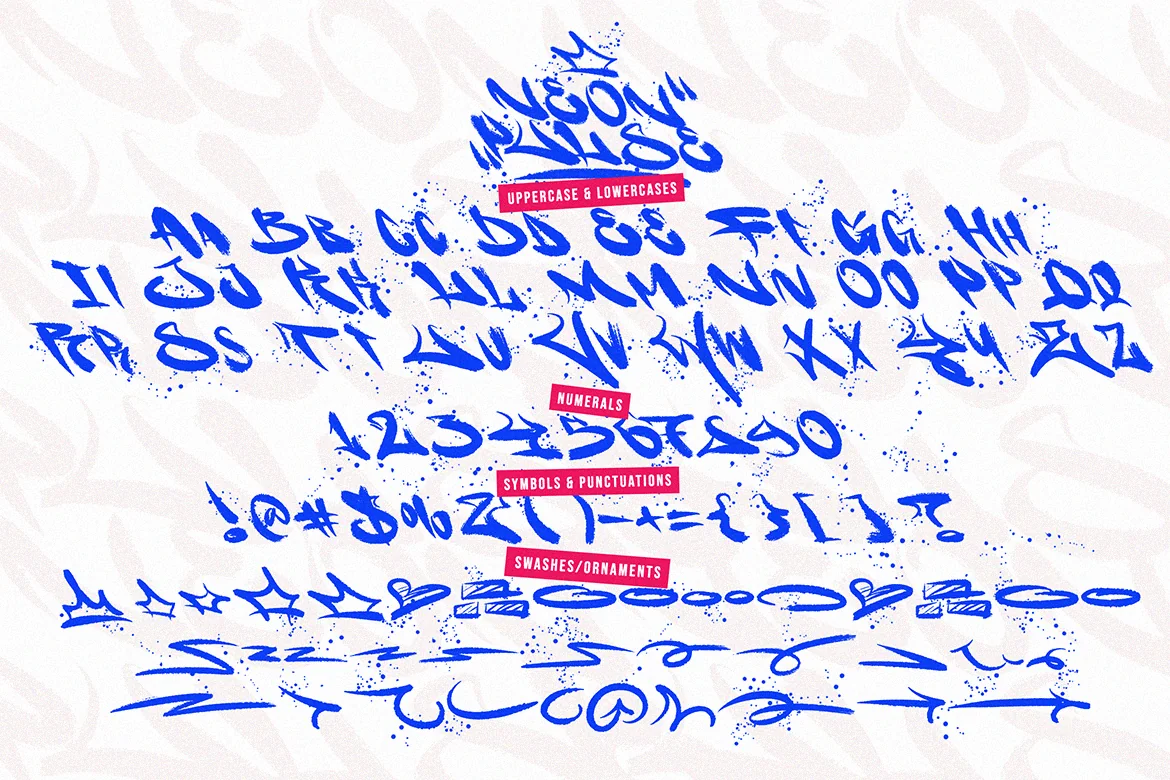 "NEON"
"PULSE
UPPERCASE & LOWERCASES
Aa Bb Cc Dd Ee Ff Gg Hh
Ii Jj Kk Ll Mm Nn Oo Pp Qq
Rr Ss Tt Uu Vv Ww Xx Yy Zz
NUMERALS
1234567890
SYMBOLS & PUNCTUATIONS
!@#$%&()-+={}[]?
SWASHES/ORNAMENTS